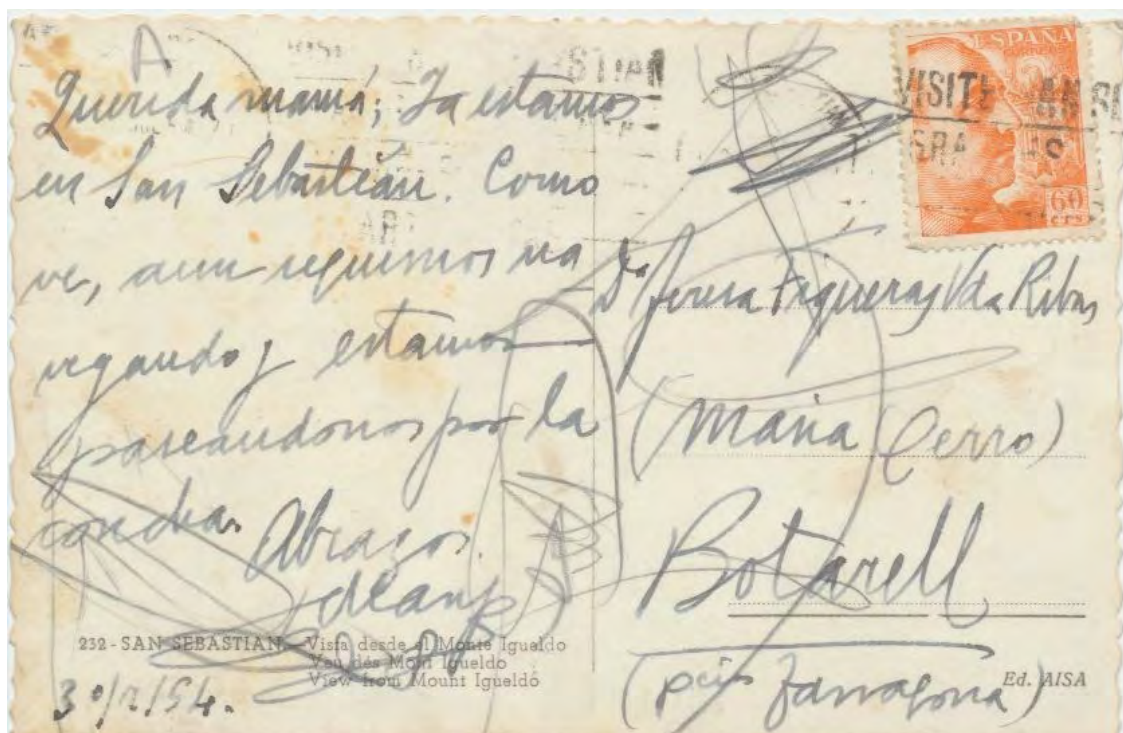 Querida mamá; Ya estamos
en San Sebastián. Como
ve, aun seguimos na
vegando y estamos
paseandonos por la
concha.
Abrazos.
232 - SAN SEBASTIAN.—Vista desde el Monte Igueldo
Veu dès Mont Igueldo
View from Mount Igueldo
ESPAÑA
CORREOS
60
CTS
VISITE SAN SE
Dª Teresa Figueras Vda Ribas
(Maria Cerro)
Botarell
(prov Tarragona)
Ed. AISA